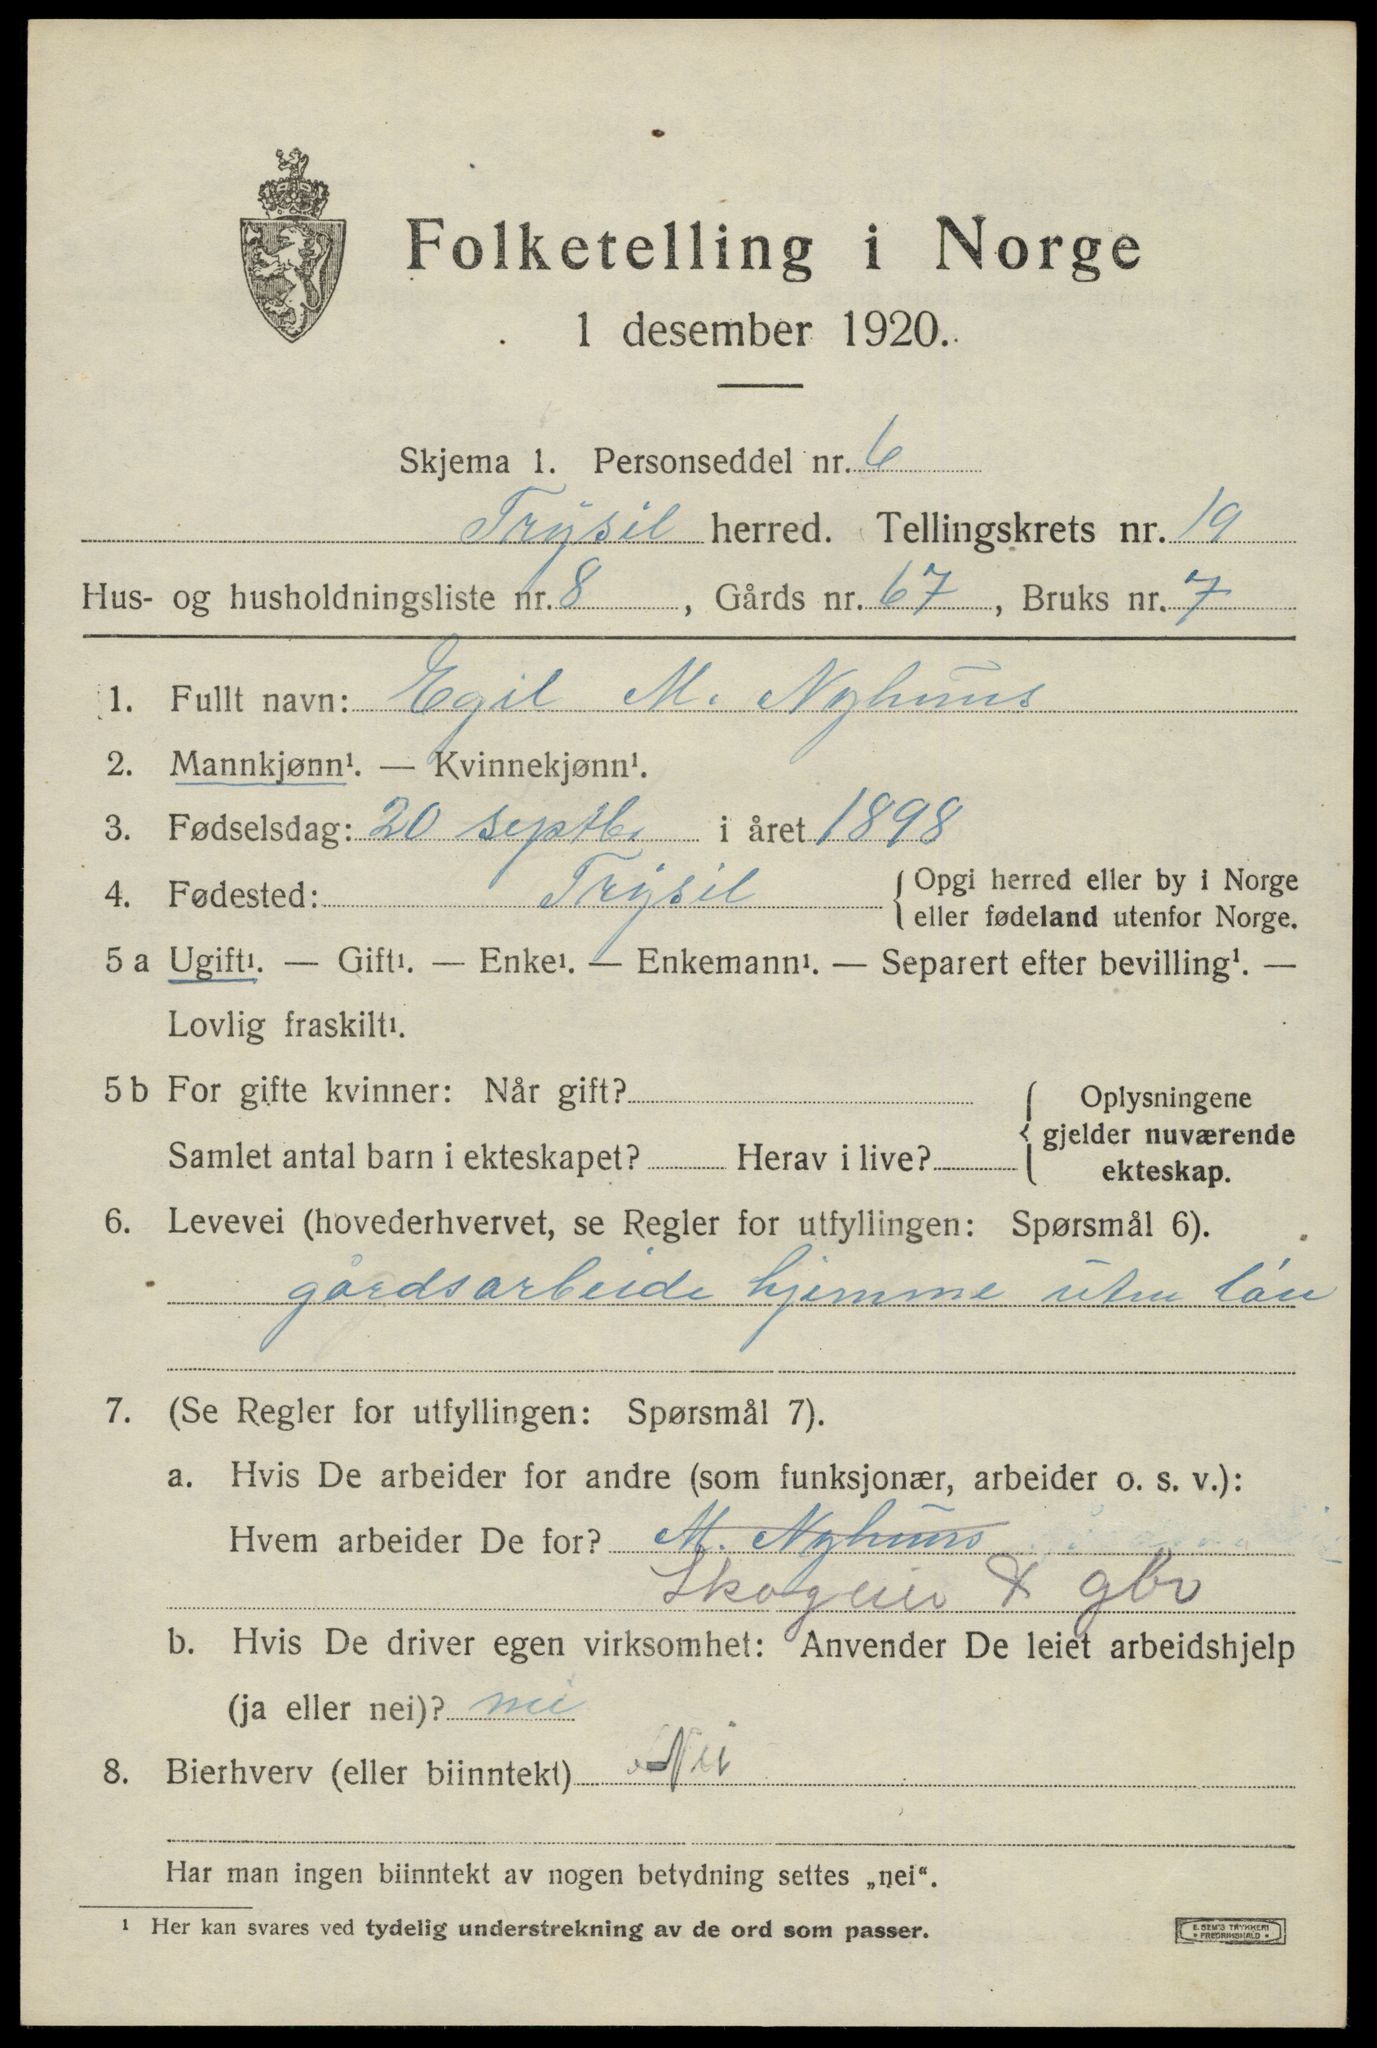 Folketelling i Norge
1 desember 1920.
Skjema 1. Personseddel nr. 6
Trysil herred. Tellingskrets nr. 19
Hus- og husholdningsliste nr. 8, Gårds nr. 67, Bruks nr. 7
1. Fullt navn: Egil M. Nyhuus
2. Mannkjønn¹. — Kvinnekjønn¹.
3. Fødselsdag: 20 septbr i året 1898
4. Fødested: Trysil { Opgi herred eller by i Norge
eller fødeland utenfor Norge.
5 a Ugift¹. — Gift¹. — Enke¹. — Enkemann¹. — Separert efter bevilling¹. —
Lovlig fraskilt¹.
5 b For gifte kvinner: Når gift?
Samlet antal barn i ekteskapet? Herav i live?
{ Oplysningene
gjelder nuværende
ekteskap.
6. Levevei (hovederhvervet, se Regler for utfyllingen: Spørsmål 6).
gårdsarbeide hjemme uten løn
7. (Se Regler for utfyllingen: Spørsmål 7).
a. Hvis De arbeider for andre (som funksjonær, arbeider o. s. v.):
Hvem arbeider De for? M. Nyhuus
Skogeier & gbr
b. Hvis De driver egen virksomhet: Anvender De leiet arbeidshjelp
(ja eller nei)? nei
8. Bierhverv (eller biinntekt) Nei
Har man ingen biinntekt av nogen betydning settes „nei“.
¹ Her kan svares ved tydelig understrekning av de ord som passer.
E. SEM'S TRYKKERI
• FREDRIKSHALD •